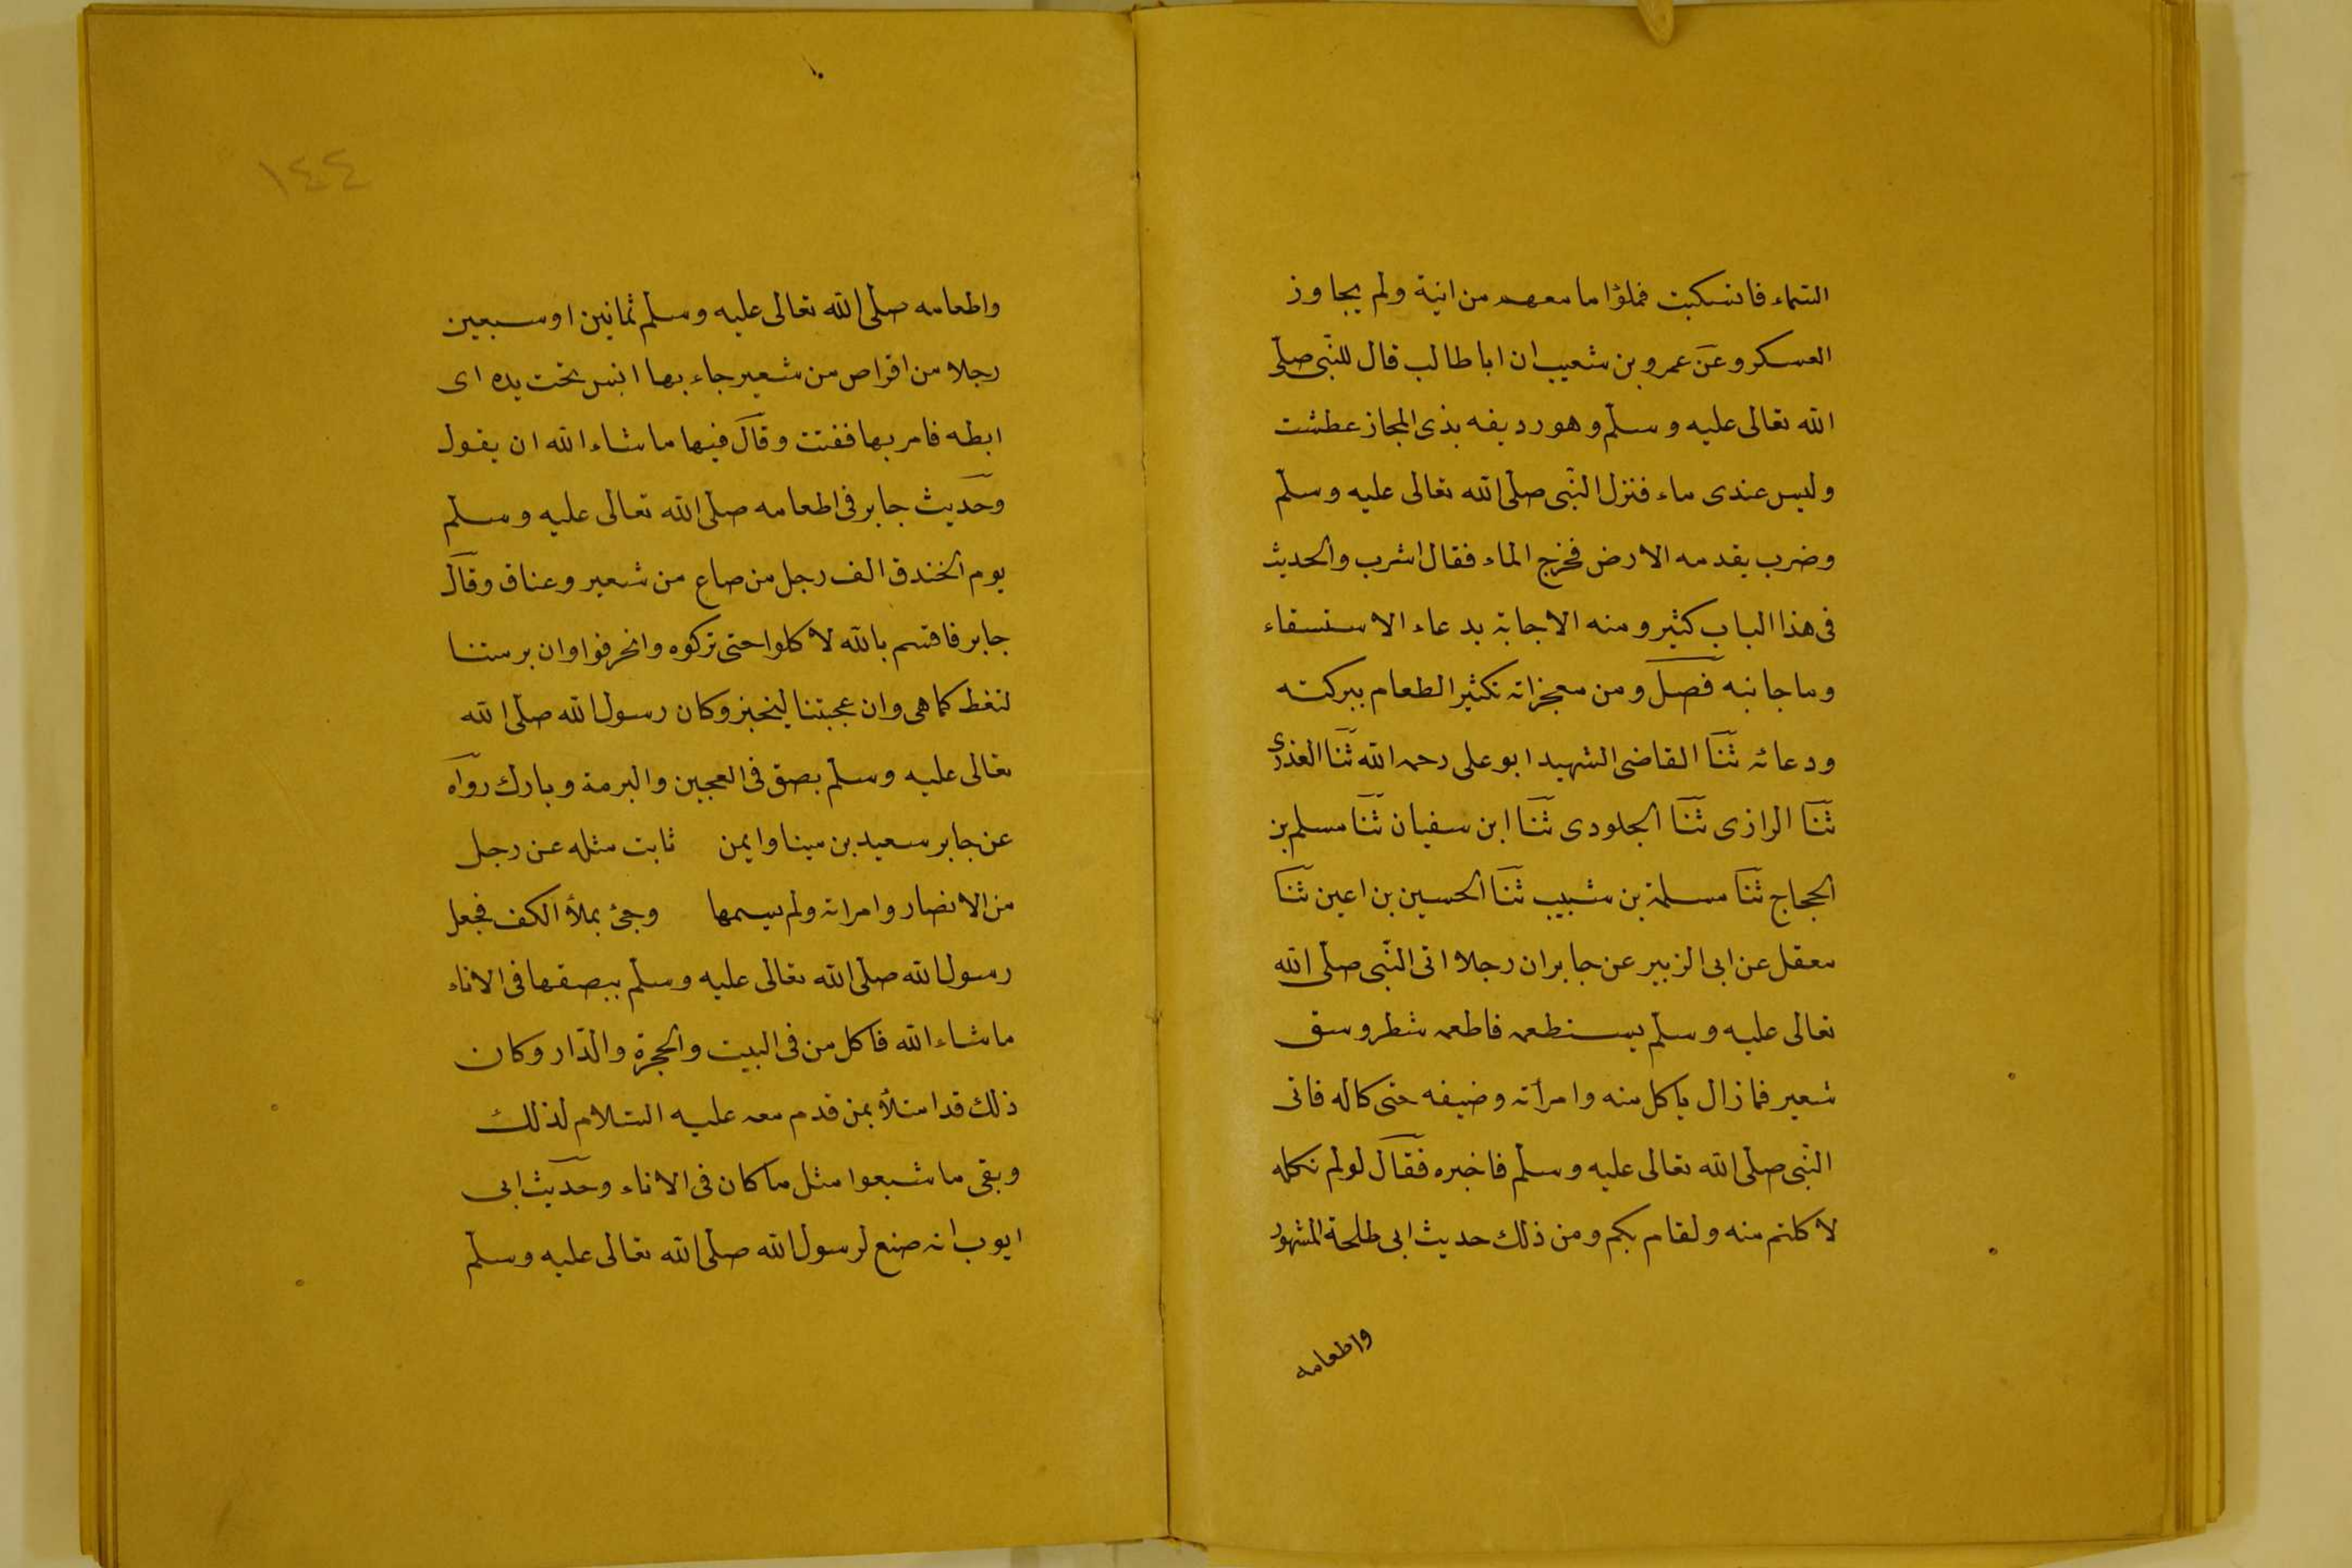 السماء فانسكبت فملؤا ما معهم من انية ولم يجاوز
العسكر وعن عمرو بن شعيب ان ابا طالب قال للنبى صلى
الله تعالى عليه وسلم وهو رديفه بذى المجاز عطشت
وليس عندى ماء فنزل النبى صلى الله تعالى عليه وسلم
وضرب بقدمه الارض فخرج الماء فقال اشرب والحديث
فى هذا الباب كثير ومنه الاجابة بدعاء الاستسقاء
وما جانبه فصل ومن معجزاته تكثير الطعام ببركته
ودعائه ثنا القاضى الشهيد ابو على رحمه الله ثنا العذرى
ثنا الرازى ثنا الجلودى ثنا ابن سفيان ثنا مسلم بن
الحجاج ثنا مسلمة بن شبيب ثنا الحسين بن اعين ثنا
معقل عن ابى الزبير عن جابر ان رجلا اتى النبى صلى الله
تعالى عليه وسلم يستطعمه فاطعمه شطر وسق
شعير فما زال ياكل منه وامرأته وضيفه حتى كاله فاتى
النبى صلى الله تعالى عليه وسلم فاخبره فقال لو لم تكله
لاكلتم منه ولقام بكم ومن ذلك حديث ابى طلحة المشهور
واطعامه
١٤٤
واطعامه صلى الله تعالى عليه وسلم ثمانين او سبعين
رجلا من اقراص من شعير جاء بها انس تحت يده اى
ابطه فامر بها ففتت وقال فيها ما شاء الله ان يقول
وحديث جابر فى اطعامه صلى الله تعالى عليه وسلم
يوم الخندق الف رجل من صاع من شعير وعناق وقال
جابر فاقسم بالله لاكلوا حتى تركوه وانحرفوا وان برمتنا
لتغط كما هى وان عجيننا ليخبز وكان رسول الله صلى الله
تعالى عليه وسلم بصق فى العجين والبرمة وبارك رواه
عن جابر سعيد بن مينا وايمن ثابت مثله عن رجل
من الانصار وامراته ولم يسمها وجئ بملأ الكف فجعل
رسول الله صلى الله تعالى عليه وسلم يبصقها فى الاناء
ما شاء الله فاكل من فى البيت والحجرة والدار وكان
ذلك قد امتلأ بمن قدم معه عليه السلام لذلك
وبقى ما شبعوا مثل ما كان فى الاناء وحديث ابى
ايوب انه صنع لرسول الله صلى الله تعالى عليه وسلم